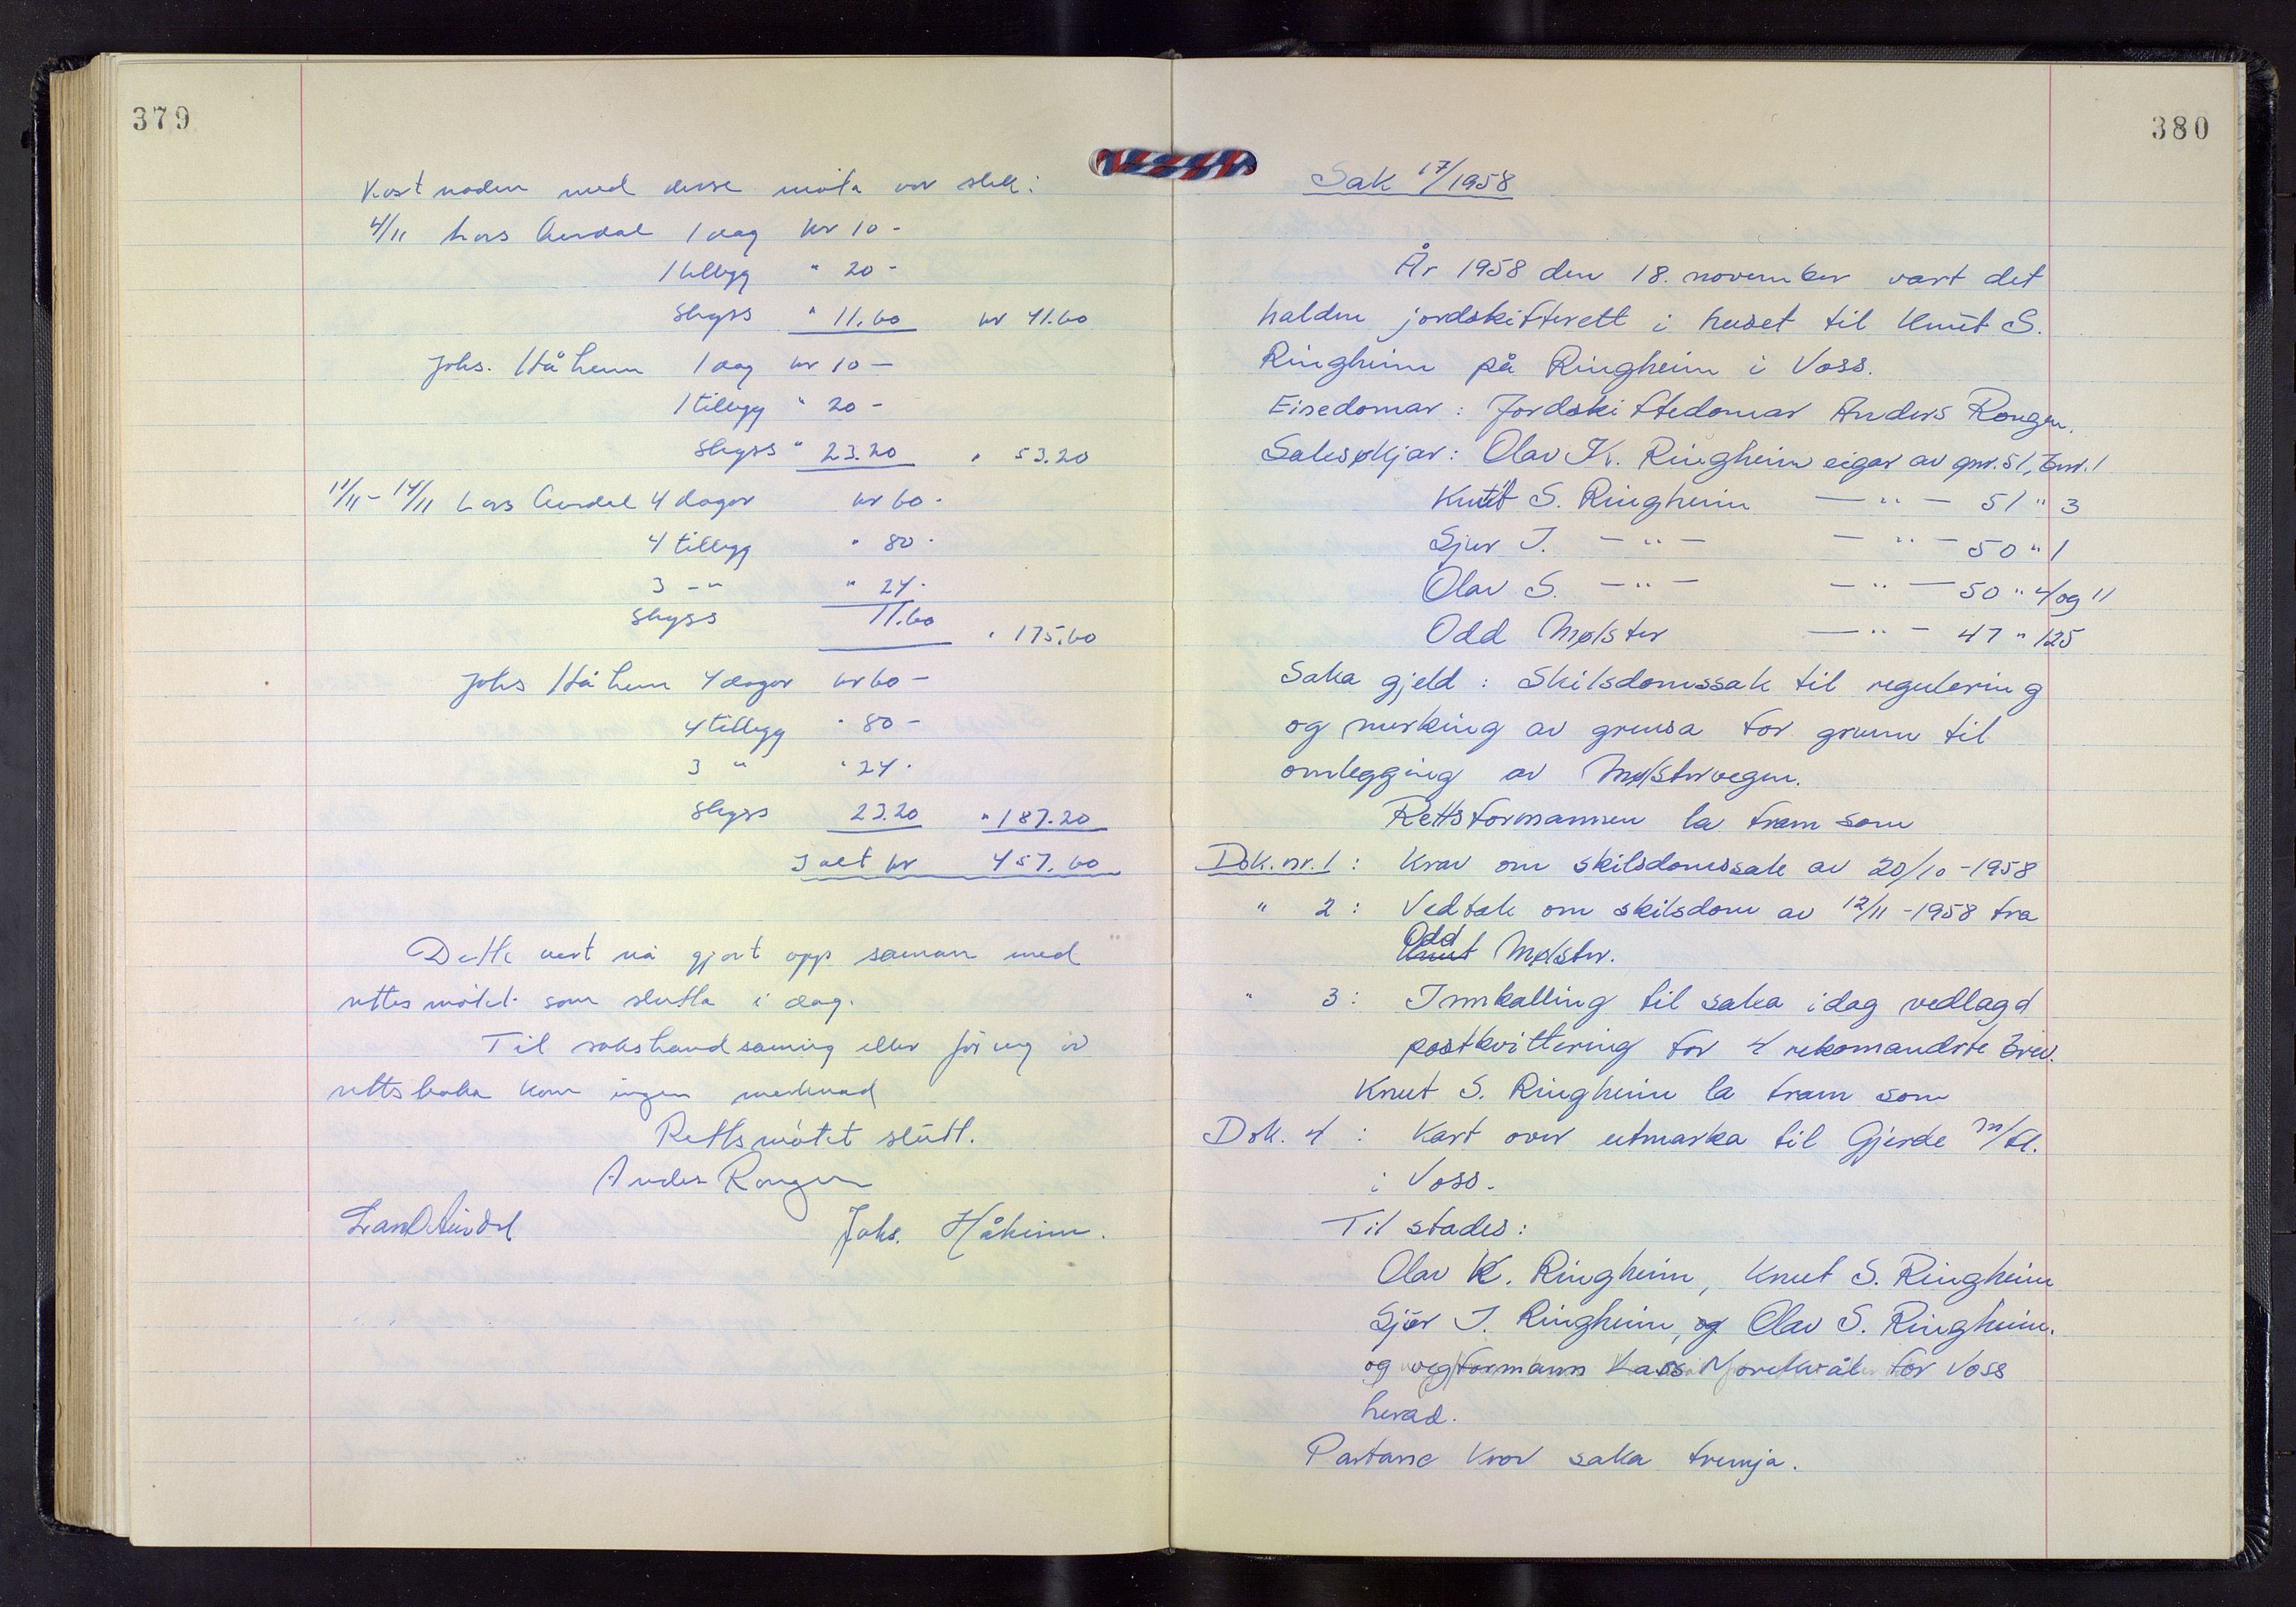 379
Kostnaden med desse møta var slik:
4/11 Lars Aurdal 1 dag kr 10 -
1 tillegg " 20 -
Skyss " 11.60 kr 41.60
Johs. Håheim 1 dag kr 10 -
1 tillegg " 20 -
Skyss " 23.20 " 53.20
11/11 - 14/11 Lars Aurdal 4 dagar kr 60 -
4 tillegg " 80 -
3 - " " 24 -
Skyss 11.60
" 175.60
Johs Håheim 4 dagar kr 60 -
4 tillegg " 80 -
3 " " 24 -
Skyss 23.20 " 187.20
I alt kr 457.60
Dette vert nå gjort opp saman med
rettsmøtet som slutta i dag.
Til sakshandsaming eller føring av
rettsboka kom ingen merknad
Rettsmøtet slutt.
Anders Rongen
Lars Aurdal Johs. Håheim.
380
Sak 17/1958
År 1958 den 18. november vart det
halden jordskifterett i huset til Knut S.
Ringheim på Ringheim i Voss.
Einedomar: Jordskiftedomar Anders Rongen.
Saksøkjar: Olav K. Ringheim eigar av gnr. 51, bnr. 1
Knut S. Ringheim — " — 51 " 3
Sjur J. — " — — " — 50 " 1
Olav S. — " — — " — 50 " 4 og 11
Odd Mølster — " — 47 " 125
Saka gjeld: Skilsdomssak til regulering
og merking av grensa for grunn til
omlegging av Mølstervegen.
Rettsformannen la fram som
Dok. nr. 1: Krav om skilsdomssak av 20/10 - 1958
" 2: Vedtak om skilsdom av 12/11 - 1958 fra
Odd
Knut Mølster.
" 3: Innkalling til saka idag vedlagd
postkvittering for 4 rekomanderte brev.
Knut S. Ringheim la fram som
Dok. 4: Kart over utmarka til Gjerde m/fl.
i Voss.
Til stades:
Olav K. Ringheim, Knut S. Ringheim
Sjur J. Ringheim, og Olav S. Ringheim.
og vegformann Lars Mørkvål for Voss
herad.
Partane krov saka fremja.